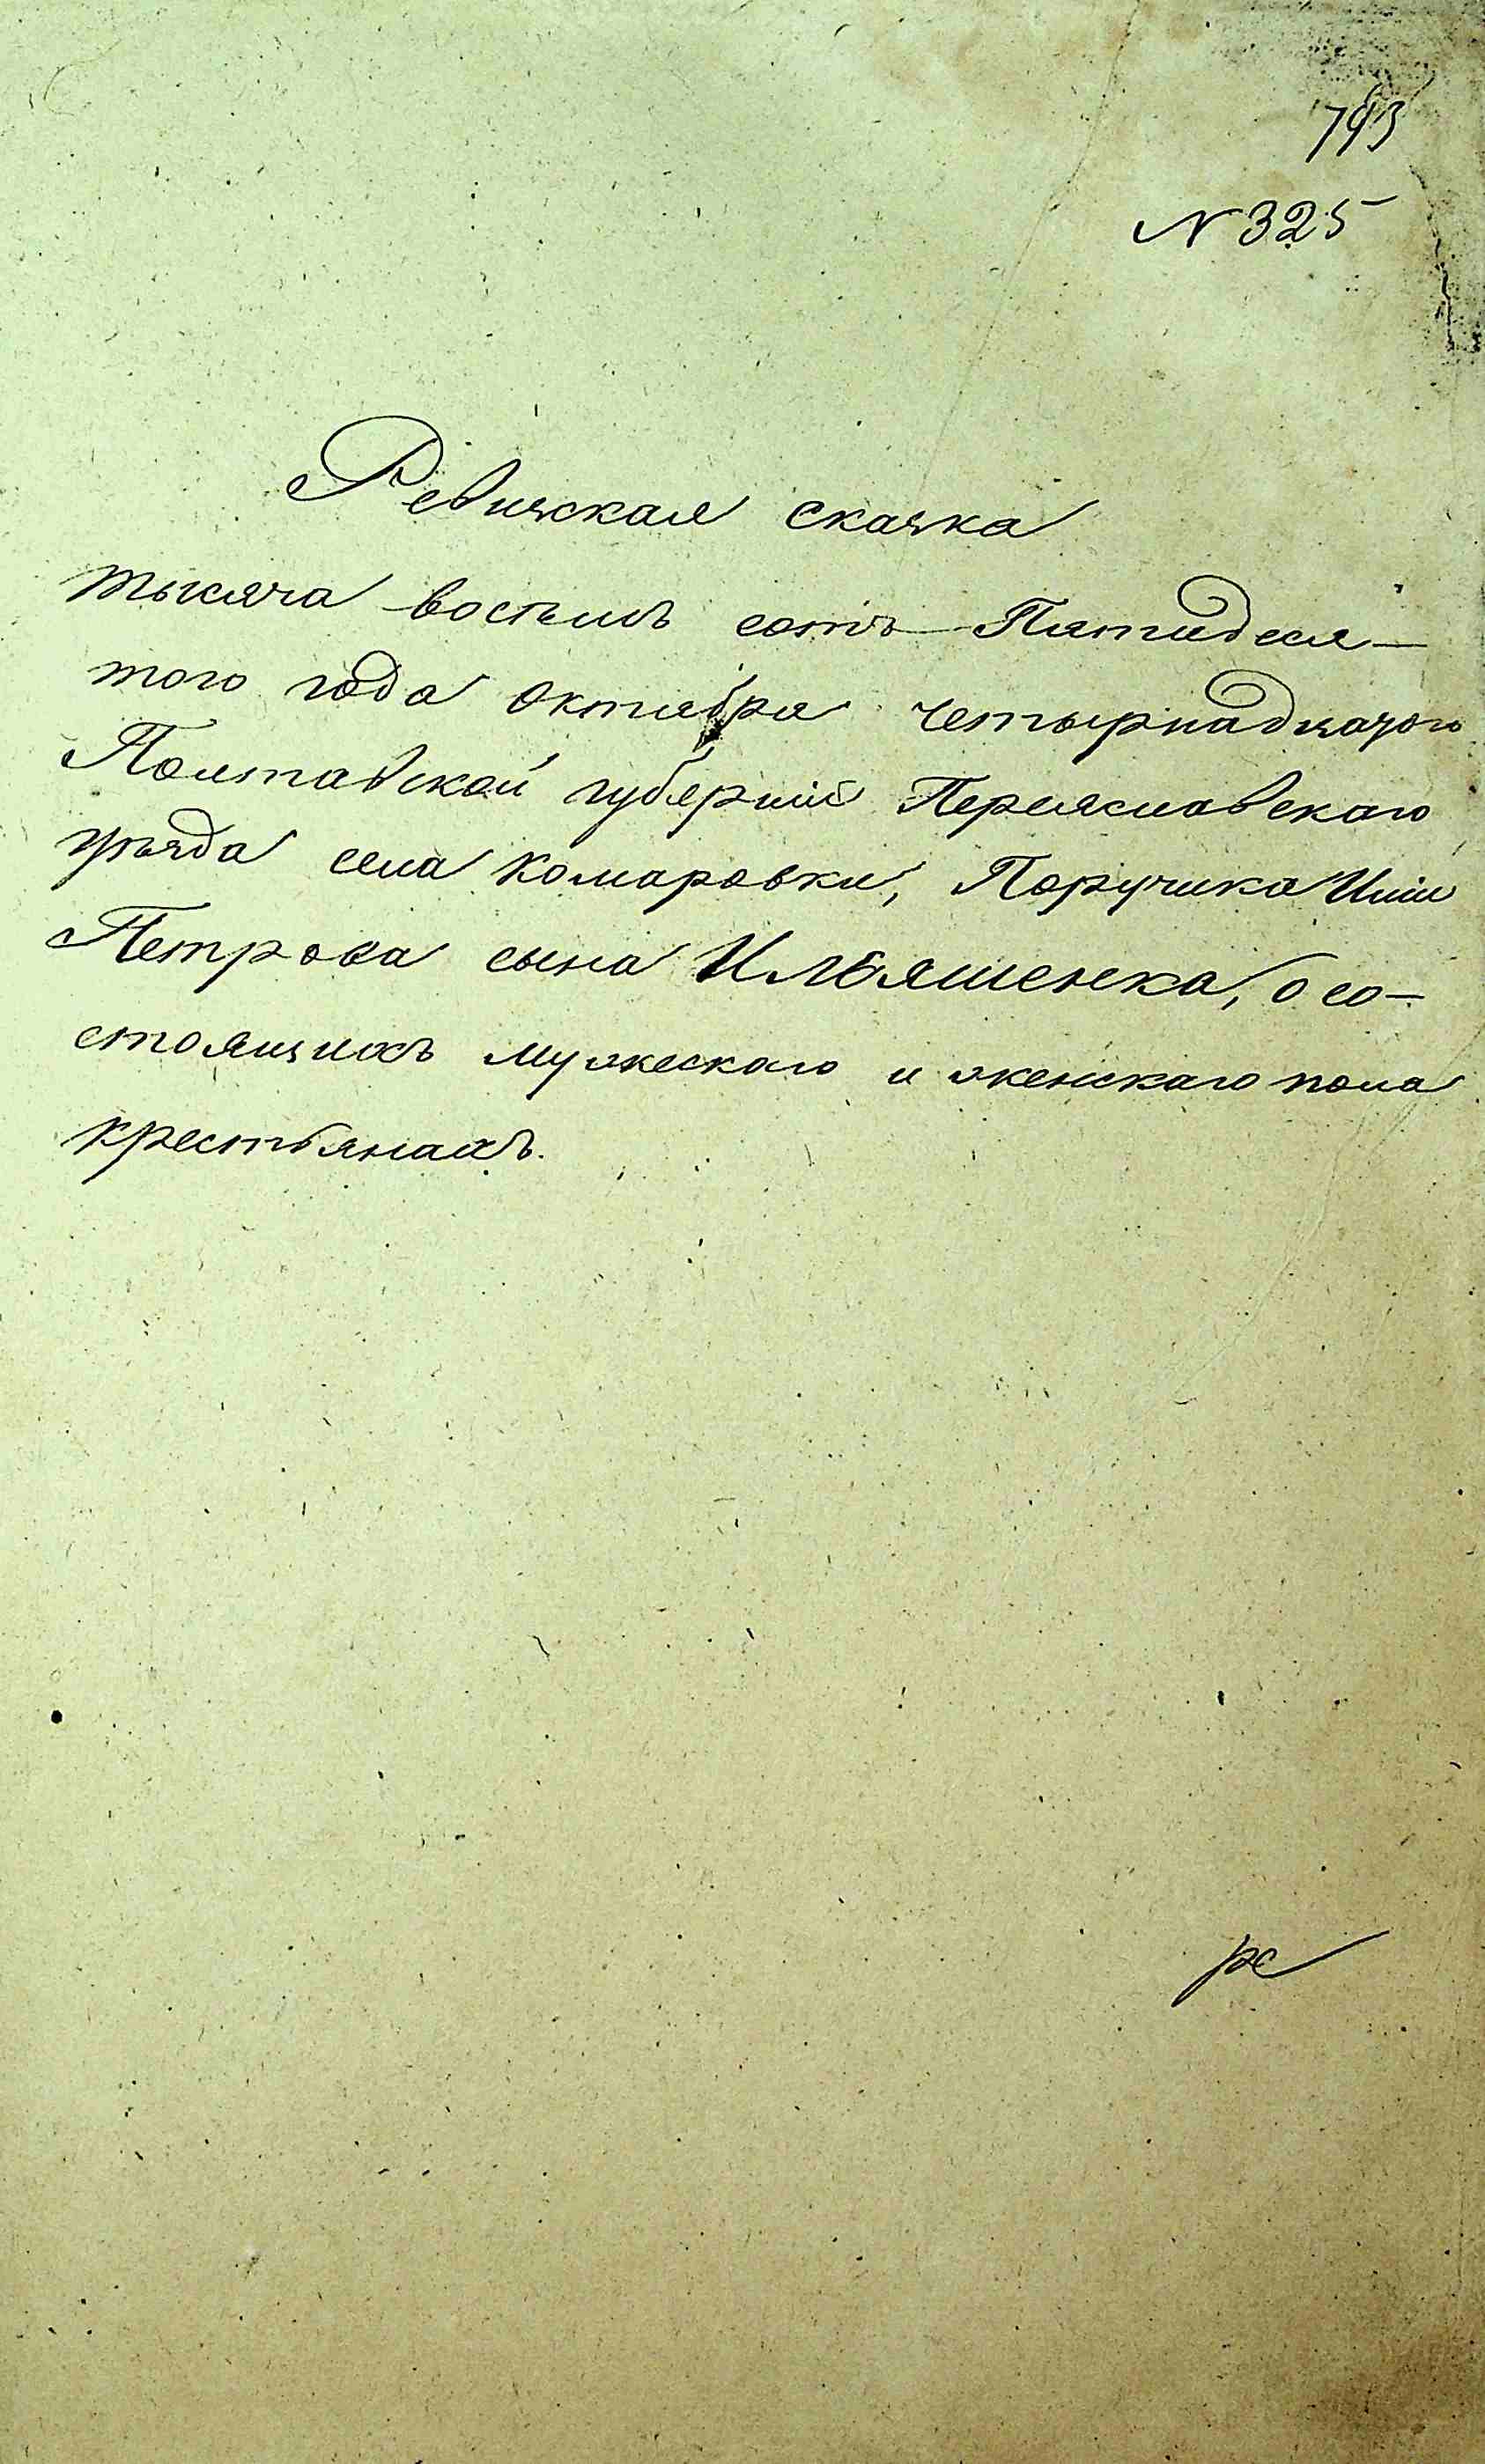 793
N 325
Ревизская сказка
тысяча восемь сотъ Пятидеся-
того года Октября четырнадцатого
Полтавской губерніи Переяславскаго
уѣзда села Комаровки, Поручика Иліи
Петрова сына Ильяшенка, о со-
стоящихъ мужескаго и женскаго пола
крестьянахъ.